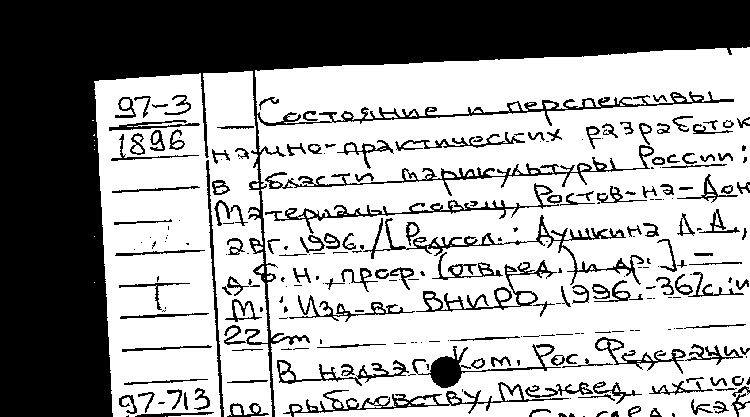 97-3 Состояние и перспективы
1896 научно-практических разработок
в области марикультуры России:
Материалы совещ., Ростов-на-Дон
авг. 1996. / [Редкол.: Душкина Л.А.,
д.б.н., проф. (отв. ред.) и др.]. –
М.: Изд-во ВНИРО, 1996. - 367с.: и
22 cm.
В надзаг. Ком. Рос. Федерации
97-713 по рыболовству, Межвед. ихтиол